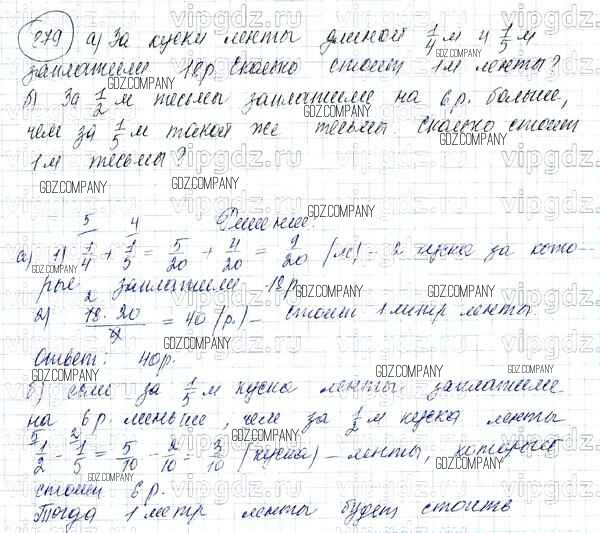 279 а) За куски ленты длиной 1/4 м и 1/5 м
заплатили 18р. Сколько стоит 1м ленты?
б) За 1/2 м тесьмы заплатили на 6р. больше,
чем за 1/5 м такой же тесьмы. Сколько стоит
1м тесьмы?
Решение:
а) 1) 1/4 + 1/5 = 5/20 + 4/20 = 9/20 (м) - 2 куска за кото-
рые заплатили 18р.
2) 18·20/9 = 40 (р.) - стоит 1 метр ленты.
Ответ: 40р.
б) если за 1/5 м куска ленты заплатили
на 6р. меньше, чем за 1/2 м куска ленты
1/2 - 1/5 = 5/10 - 2/10 = 3/10 (куска) - ленты, которые
стоит 6р.
Тогда 1 метр ленты будет стоить
vipgdz.ru
GDZ.COMPANY